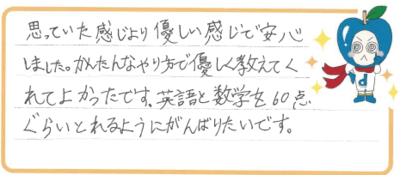 思っていた感じより優しい感じで安心
しました。かんたんなやり方で優しく教えてく
れてよかったです。英語と数学を60点
ぐらいとれるようにがんばりたいです。
d